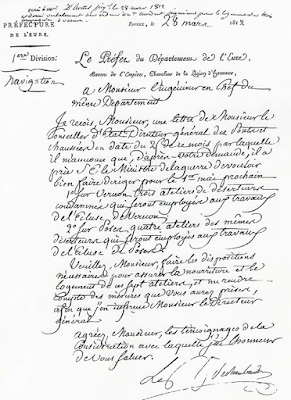 PRÉFECTURE
DE L'EURE.
1ere Division.
Navigation
Evreux, le 28 mars 1812
Le Préfet du Département de l'Eure,
Baron de l'Empire, Chevalier de la Légion d'honneur,
a Monsieur l'ingénieur en Chef du
même Département
Je reçois, Monsieur, une lettre de Monsieur le
Conseiller d'Etat Directeur général des Ponts et
Chaussées en date du 25 de ce mois par laquelle
il m'annonce que, d'après votre demande, il a
prié S.E. le Ministre de la guerre de vouloir
bien faire diriger pour le 1er mai prochain
sur Vernon trois ateliers de déserteurs
condamnés qui seront employés aux travaux
de l'Ecluse de Vernon
2° sur Poses quatre ateliers des mêmes
déserteurs qui seront employés aux travaux
de l'Ecluse de Poses.
Veuillez, Monsieur, faire les dispositions
nécessaires pour assurer la nourriture et le
logement de ces sept ateliers, et me rendre
compte des mesures que vous aurez prises,
afin que j'en informe Monsieur le Directeur
général
agréez, Monsieur, les témoignages de la
Considération avec laquelle j'ai l'honneur
de vous saluer.